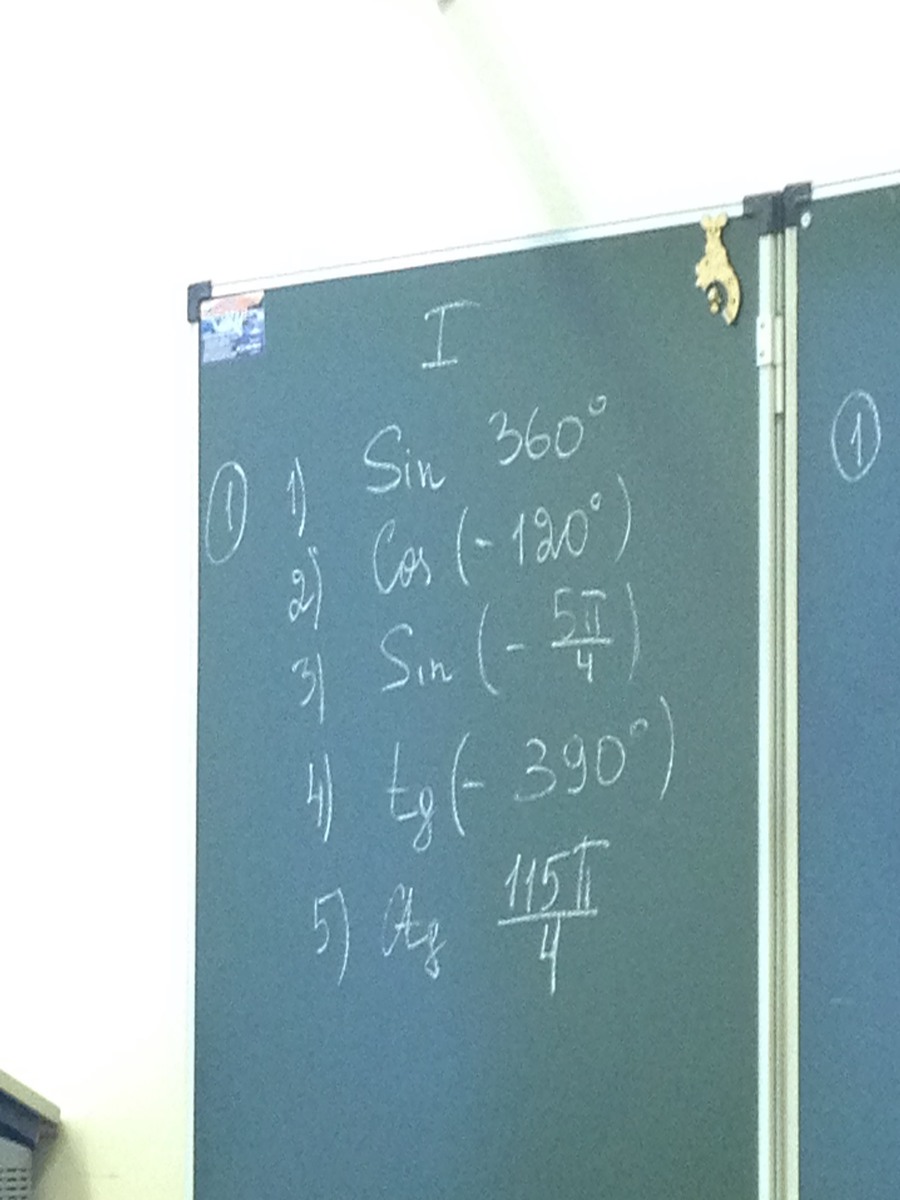 I
① 1) Sin 360°
2) Cos (- 120°)
3) Sin (- 5π/4)
4) tg (- 390°)
5) Ctg 115π/4
①